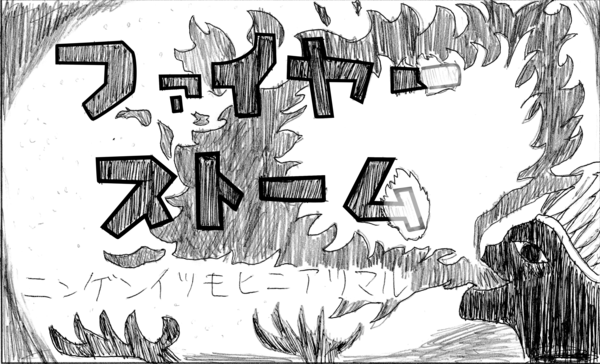 ファイヤー
ストーム
ニンゲンイツモヒニアリマル